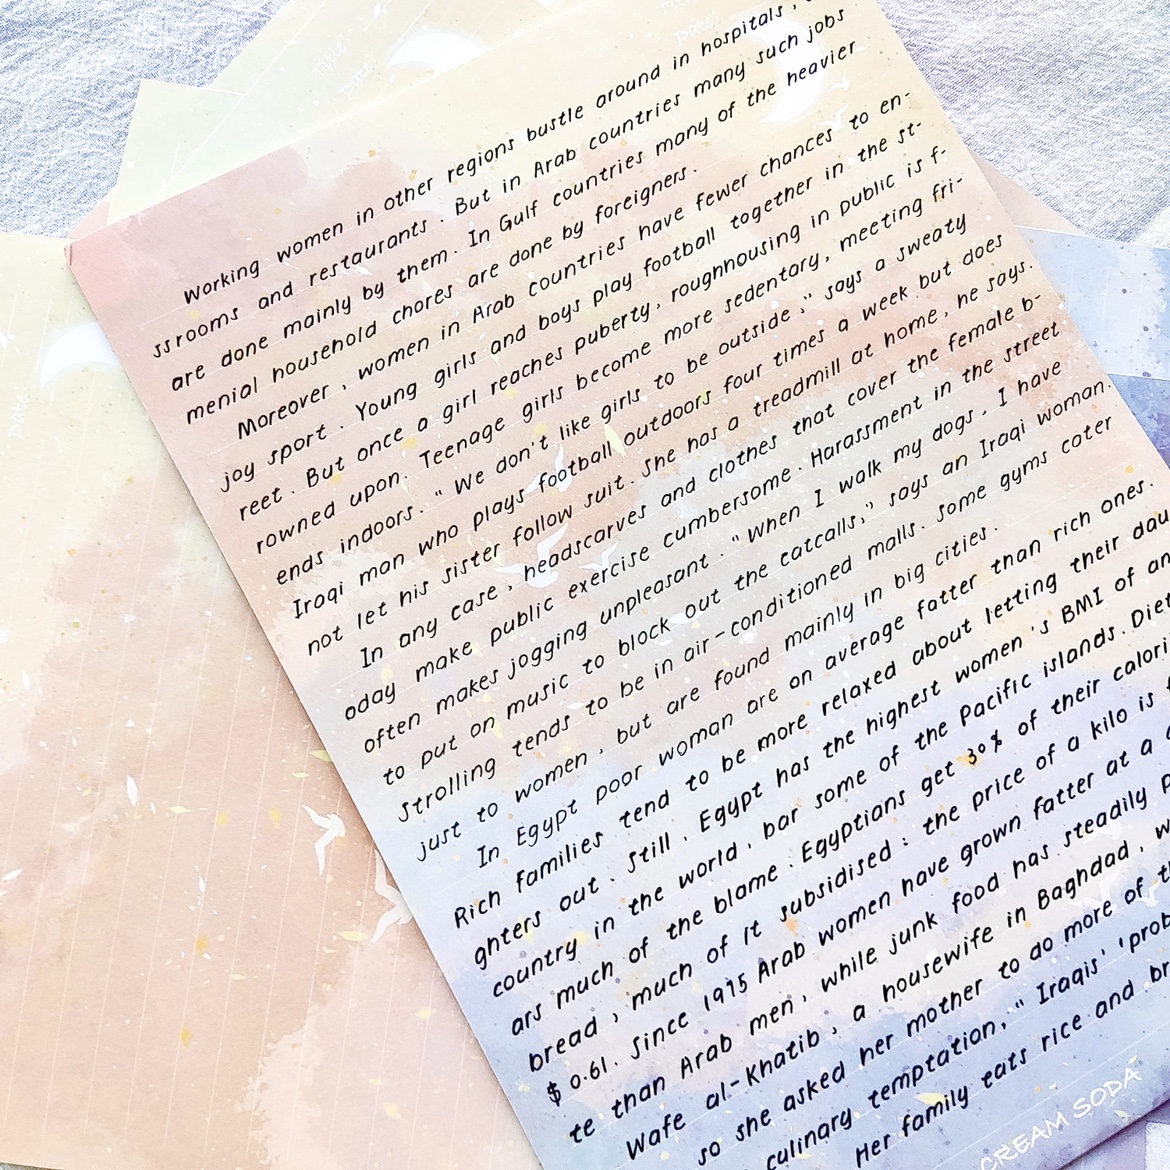 Title:
Date:
Title:
Date:
Date:
working women in other regions bustle around in hospitals,
ssrooms and restaurants. But in Arab countries many such jobs
are done mainly by them. In Gulf countries many of the heavier
menial household chores are done by foreigners.
Moreover, women in Arab countries have fewer chances to en-
joy sport. Young girls and boys play football together in the st-
reet. But once a girl reaches puberty, roughnousing in public is f-
rowned upon. Teenage girls become more sedentary, meeting fri-
ends indoors. "We don't like girls to be outside," says a sweaty
Iraqi man who plays football outdoors four times a week but does
not let his sister follow suit. She has a treadmill at home, he says.
In any case, headscarves and clothes that cover the female b-
oday make public exercise cumbersome. Harassment in the street
often makes jogging unpleasant. "When I walk my dogs, I have
to put on music to block out the catcalls," says an Iraqi woman.
Strolling tends to be in air-conditioned malls. Some gyms cater
just to women, but are found mainly in big cities.
In Egypt poor woman are on average fatter than rich ones.
Rich families tend to be more relaxed about letting their dau
ghters out. Still, Egypt has the highest women's BMI of an
country in the world, bar some of the Pacific islands. Diet
ars much of the blame. Egyptians get 30% of their calori
bread, much of it subsidised: the price of a kilo is
$0.61. Since 1975 Arab women have grown fatter at a
te than Arab men, while junk food has steadily
Wafe al-Khatib, a housewife in Baghdad,
so she asked her mother to do more of
culinary temptation," Iraqis' 'prob
Her family eats rice and br
CREAM SODA